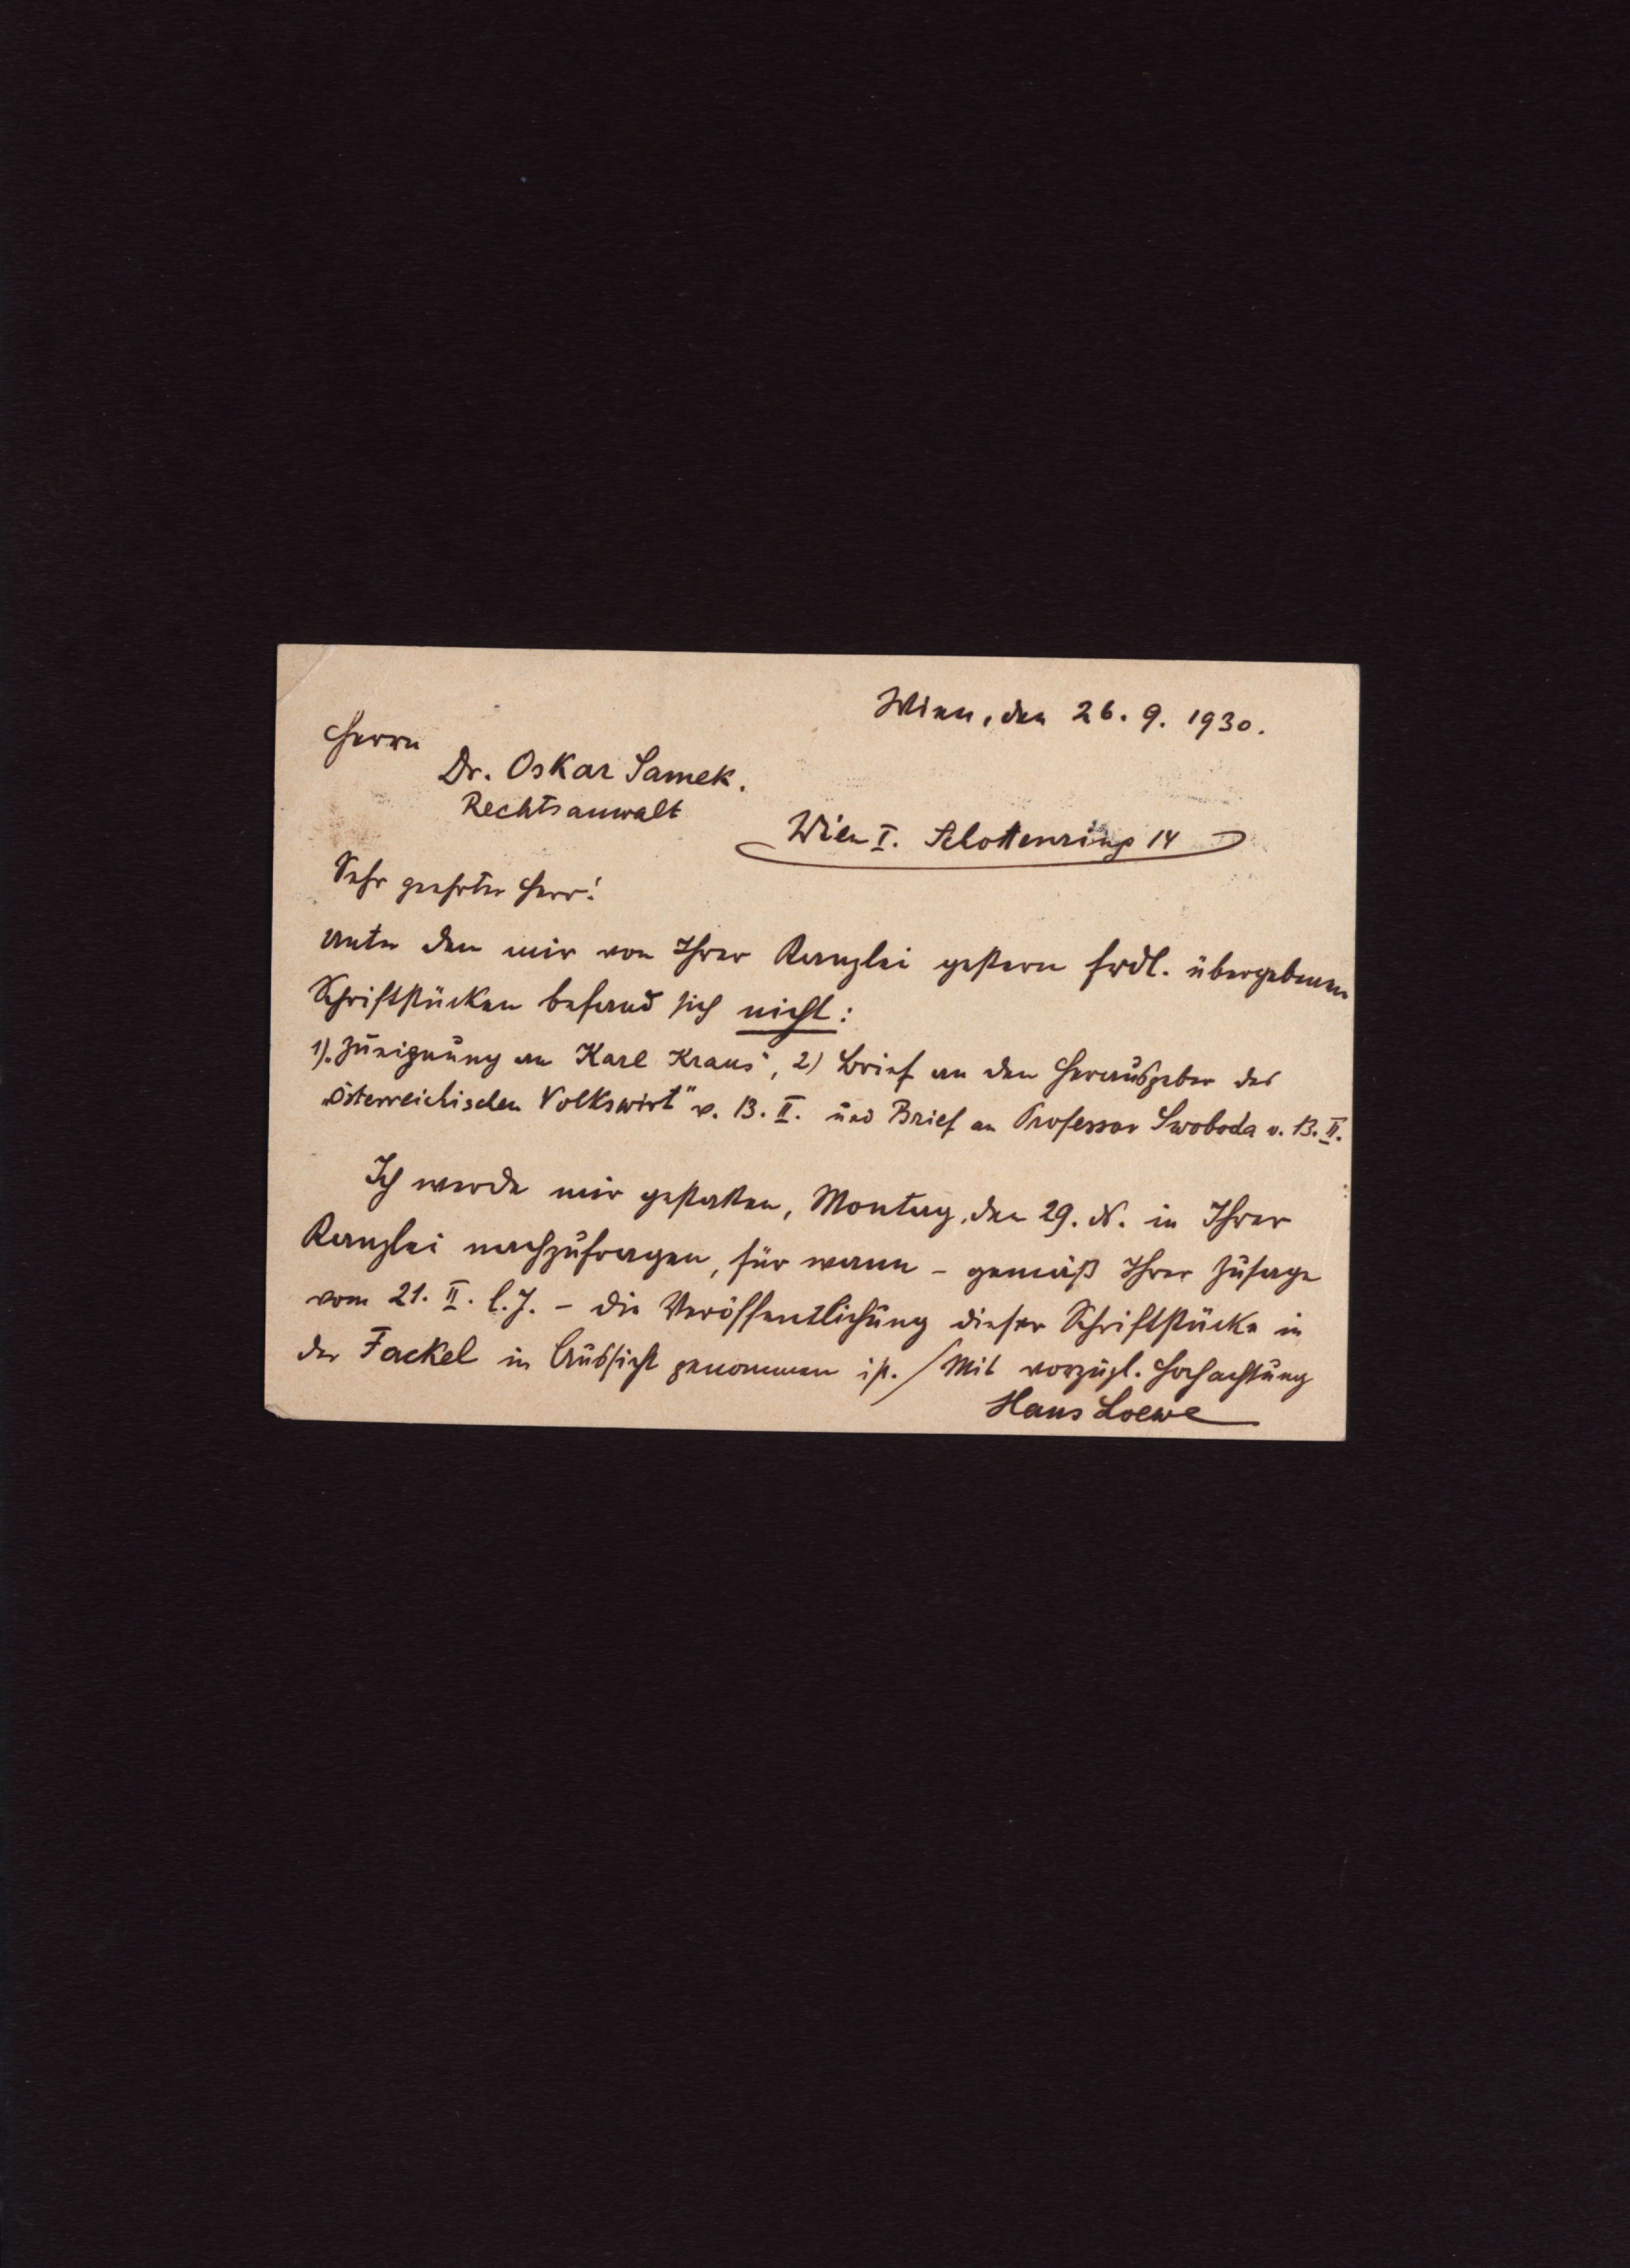 Wien, den 26. 9. 1930.
Herrn
Dr. Oskar Samek.
Rechtsanwalt
Wien I. Schottenring 14
Sehr geehrter Herr!
Unter den mir von Ihrer Kanzlei gestern frdl. übergebenen
Schriftstücken befand sich nicht:
1). Zueignung an Karl Kraus", 2) Brief an den Herausgeber des
„Österreichischen Volkswirt" v. 13. II. und Brief an Professor Swoboda v. 13. II.
Ich werde mir gestatten, Montag, den 29. d. in Ihrer
Kanzlei nachzufragen, für wann – gemäß Ihrer Zusage
vom 21. II. l. J. – die Veröffentlichung dieser Schriftstücke in
der Fackel in Aussicht genommen ist. / Mit vorzügl. Hochachtung
Hans Loewe